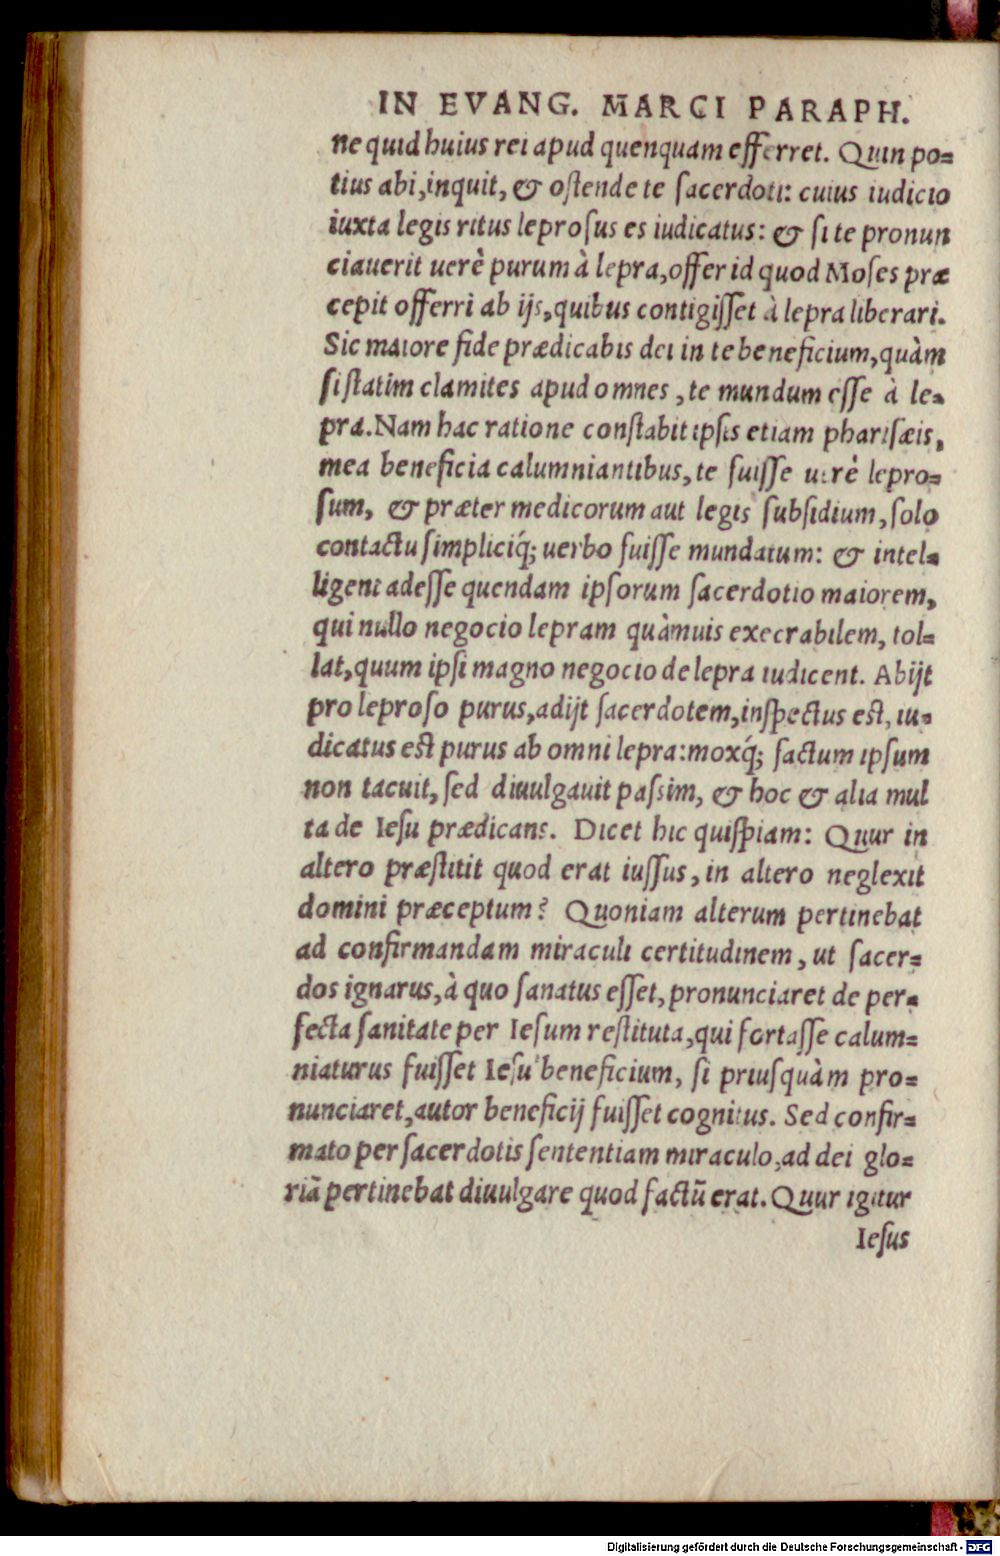 IN EVANG. MARCI PARAPH.
ne quid huius rei apud quenquam efferret. Quin po=
tius abi, inquit, & oſtende te ſacerdoti: cuius iudicio
iuxta legis ritus leproſus es iudicatus: & ſi te pronun
ciauerit uerè purum à lepra, offer id quod Moſes præ
cepit offerri ab ijs, quibus contigiſſet à lepra liberari.
Sic maiore fide prædicabis dei in te beneficium, quàm
ſi ſtatim clamites apud omnes, te mundum eſſe à le=
pra. Nam hac ratione conſtabit ipſis etiam phariſæis,
mea beneficia calumniantibus, te fuiſſe uerè lepro=
ſum, & præter medicorum aut legis ſubſidium, ſolo
contactu ſimpliciq́; uerbo fuiſſe mundatum: & intel=
ligent adeſſe quendam ipſorum ſacerdotio maiorem,
qui nullo negocio lepram quàmuis execrabilem, tol=
lat, quum ipſi magno negocio de lepra iudicent. Abijt
pro leproſo purus, adijt ſacerdotem, inſpectus eſt, iu=
dicatus eſt purus ab omni lepra: moxq́; factum ipſum
non tacuit, ſed diuulgauit paſsim, & hoc & alia mul
ta de Ieſu prædicans. Dicet hic quiſpiam: Quur in
altero præſtitit quod erat iuſſus, in altero neglexit
domini præceptum? Quoniam alterum pertinebat
ad confirmandam miraculi certitudinem, ut ſacer=
dos ignarus, à quo ſanatus eſſet, pronunciaret de per=
fecta ſanitate per Ieſum reſtituta, qui fortaſſe calum=
niaturus fuiſſet Ieſu beneficium, ſi priuſquàm pro=
nunciaret, autor beneficij fuiſſet cognitus. Sed confir=
mato per ſacerdotis ſententiam miraculo, ad dei glo=
riā pertinebat diuulgare quod factū erat. Quur igitur
Ieſus
Digitalisierung gefördert durch die Deutsche Forschungsgemeinschaft - DFG